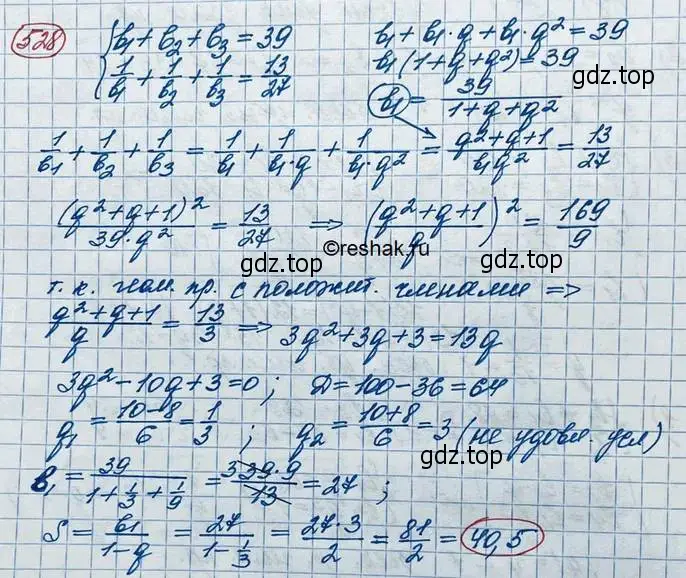 528 { b₁ + b₂ + b₃ = 39    b₁ + b₁·q + b₁·q² = 39
1/b₁ + 1/b₂ + 1/b₃ = 13/27    b₁(1+q+q²) = 39
gdz.top
b₁ = 39/(1+q+q²)
gdz.top
1/b₁ + 1/b₂ + 1/b₃ = 1/b₁ + 1/(b₁·q) + 1/(b₁·q²) = (q²+q+1)/(b₁q²) = 13/27
(q²+q+1)²/(39·q²) = 13/27 ⇒ ((q²+q+1)/q)² = 169/9
©reshak.ru
gdz.top
gdz.top
т.к. геом. пр. с положит. членами ⇒
(q²+q+1)/q = 13/3 ⇒ 3q²+3q+3 = 13q
3q²−10q+3=0; Д=100−36=64
q₁ = (10−8)/6 = 1/3; q₂ = (10+8)/6 = 3 (не удовл. усл)
gdz.top
b₁ = 39/(1+1/3+1/9) = 3 39·9/13 = 27;
gdz.top
S = b₁/(1−q) = 27/(1−1/3) = 27·3/2 = 81/2 = 40,5